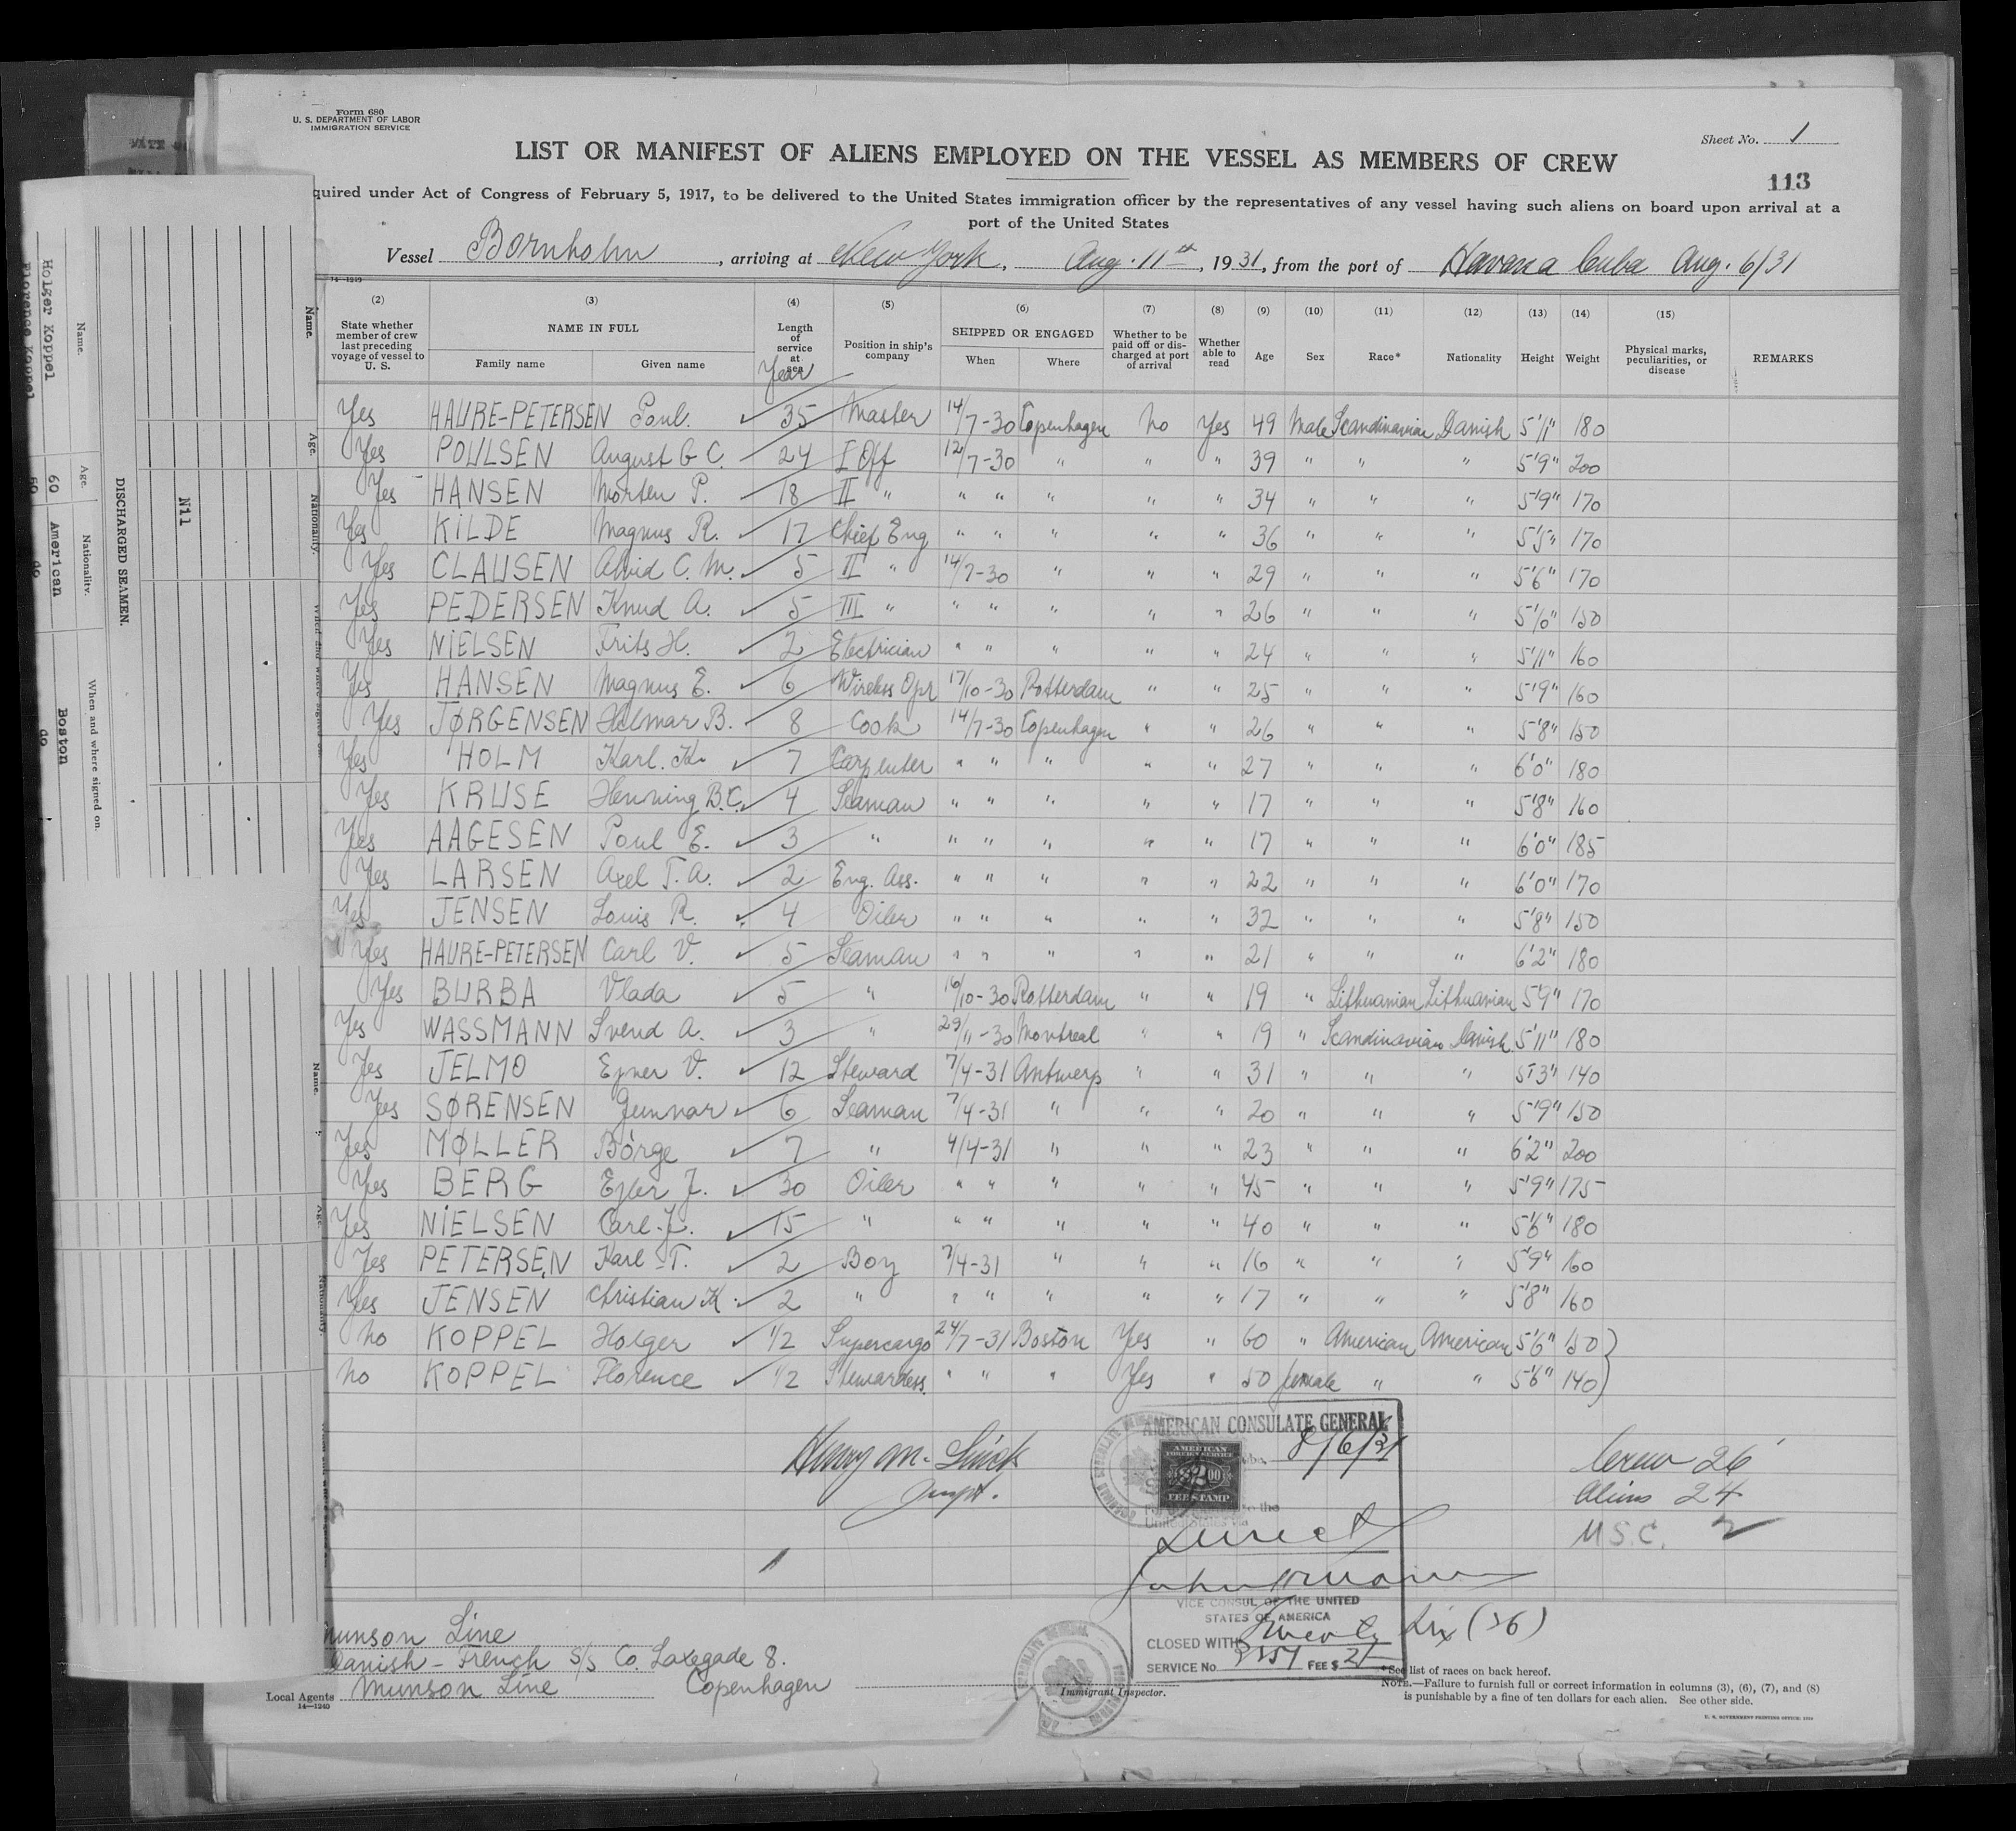 Form 680
U. S. DEPARTMENT OF LABOR
IMMIGRATION SERVICE
Sheet No. 1
LIST OR MANIFEST OF ALIENS EMPLOYED ON THE VESSEL AS MEMBERS OF CREW
113
quired under Act of Congress of February 5, 1917, to be delivered to the United States immigration officer by the representatives of any vessel having such aliens on board upon arrival at a
port of the United States
Vessel Bornholm, arriving at New York, Aug. 11th, 1931, from the port of Havana Cuba Aug. 6/31
14-1240
(2) (3) (4) (5) (6) (7) (8) (9) (10) (11) (12) (13) (14) (15)
State whether member of crew last preceding voyage of vessel to U. S. NAME IN FULL Family name Given name Length of service at sea Year Position in ship's company SHIPPED OR ENGAGED When Where Whether to be paid off or discharged at port of arrival Whether able to read Age Sex Race* Nationality Height Weight Physical marks, peculiarities, or disease REMARKS
Yes HAURE-PETERSEN Poul. ✓ 35 Master 14/7-30 Copenhagen No Yes 49 Male Scandinavian Danish 5'11" 180
Yes POULSEN August G C. ✓ 24 I Off 12/7-30 " " " 39 " " " 5'9" 200
Yes HANSEN Morten P. ✓ 18 II " " " " " " 34 " " " 5'9" 170
Yes KILDE Magnus R. ✓ 17 Chief Eng " " " " " 36 " " " 5'5" 170
Yes CLAUSEN C. M. ✓ 5 II " 14/7-30 " " " 29 " " " 5'6" 170
Yes PEDERSEN Knud A. ✓ 5 III " " " " " " 26 " " " 5'10" 150
Yes NIELSEN Frits H. ✓ 2 Electrician " " " " " 24 " " " 5'11" 160
Yes HANSEN Magnus E. ✓ 6 Wireless Opr 17/10-30 Rotterdam " " 25 " " " 5'9" 160
Yes JØRGENSEN B. ✓ 8 Cook 14/7-30 Copenhagen " " 26 " " " 5'8" 150
Yes HOLM Karl. K. ✓ 7 Carpenter " " " " " 27 " " " 6'0" 180
Yes KRUSE Henning B.C. ✓ 4 Seaman " " " " " 17 " " " 5'8" 160
Yes AAGESEN Poul E. ✓ 3 " " " " " " 17 " " " 6'0" 185
Yes LARSEN Axel T. A. ✓ 2 Eng. Ass. " " " " " 22 " " " 6'0" 170
Yes JENSEN Louis R. ✓ 4 Oiler " " " " " 32 " " " 5'8" 150
Yes HAURE-PETERSEN Carl V. ✓ 5 Seaman " " " " " 21 " " " 6'2" 180
Yes BURBA Vlada ✓ 5 " 16/10-30 Rotterdam " " 19 " Lithuanian Lithuanian 5'9" 170
Yes WASSMANN Svend A. ✓ 3 " 29/11-30 Montreal " " 19 " Scandinavian Danish 5'11" 180
Yes JELMO Ejner V. ✓ 12 Steward 7/4-31 Antwerp " " 31 " " " 5'3" 140
Yes SØRENSEN Gunnar ✓ 6 Seaman 7/4-31 " " " 20 " " " 5'9" 150
Yes MØLLER Börge ✓ 7 " 4/4-31 " " " 23 " " " 6'2" 200
Yes BERG Ejler J. ✓ 30 Oiler " " " " " 45 " " " 5'9" 175
Yes NIELSEN Carl J. ✓ 15 " " " " " " 40 " " " 5'6" 180
Yes PETERSEN Karl T. ✓ 2 Boy 7/4-31 " " " 16 " " " 5'9" 160
Yes JENSEN Christian K. ✓ 2 " " " " " " 17 " " " 5'8" 160
No KOPPEL Holger ✓ 1/2 Supercargo 24/7-31 Boston Yes " 60 " American American 5'6" 150
No KOPPEL Florence ✓ 1/2 Stewardess. " " " Yes " 50 female " " 5'6" 140
Henry M.
Inspt.
AMERICAN CONSULATE GENERAL
8/6/31
AMERICAN
FOREIGN SERVICE
FEE STAMP
to the
United States via
Direct
VICE CONSUL OF THE UNITED
STATES OF AMERICA
CLOSED WITH
SERVICE No. FEE $ 2
Six (26)
Crew 26
Aliens 24
U S.C. 2
Munson Line
Danish - French S/S Co. Laxegade 8.
Copenhagen
Local Agents Munson Line
14-1240
Immigrant Inspector.
*See list of races on back hereof.
NOTE.—Failure to furnish full or correct information in columns (3), (6), (7), and (8)
is punishable by a fine of ten dollars for each alien. See other side.
U. S. GOVERNMENT PRINTING OFFICE: 1930
DISCHARGED SEAMEN.
Name. Age. Nationality. When and where signed on.
Holger Koppel 60 American Boston
Florence Koppel 50 do do
Nil
Name. Age. Nationality.
Name. Age. Nationality.